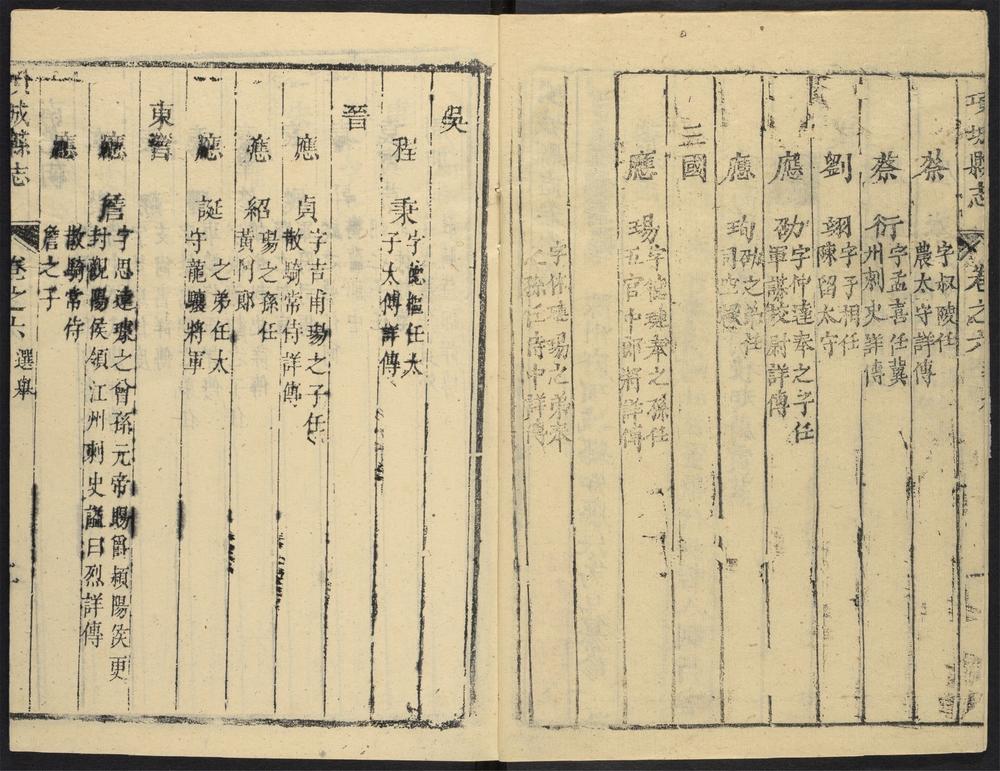 項城縣志
卷之六
蔡
字叔陵任
農太守詳傳
蔡 衍
字孟喜任冀
州刺史詳傳
劉 翊
字子相任
陳留太守
應 劭
字仲達奉之子任
軍謀校尉詳傳
應 珣
劭之弟任
司空掾
三國
應 瑒
字德璉奉之孫任
五官中郎將詳傳
字休璉瑒之弟奉
之孫任侍中詳傳
吳
程 秉
字德樞任太
子太傅詳傳
晉
應 貞
字吉甫瑒之子任
散騎常侍詳傳
應 紹
瑒之孫任
黃門郎
應 誕
之弟任太
守龍驤將軍
東晉
應 詹
字思遠璩之曾孫元帝賜爵頴陽侯更
封觀陽侯領江州刺史謚曰烈詳傳
應
散騎常侍
詹之子
城縣志
卷之六 選舉